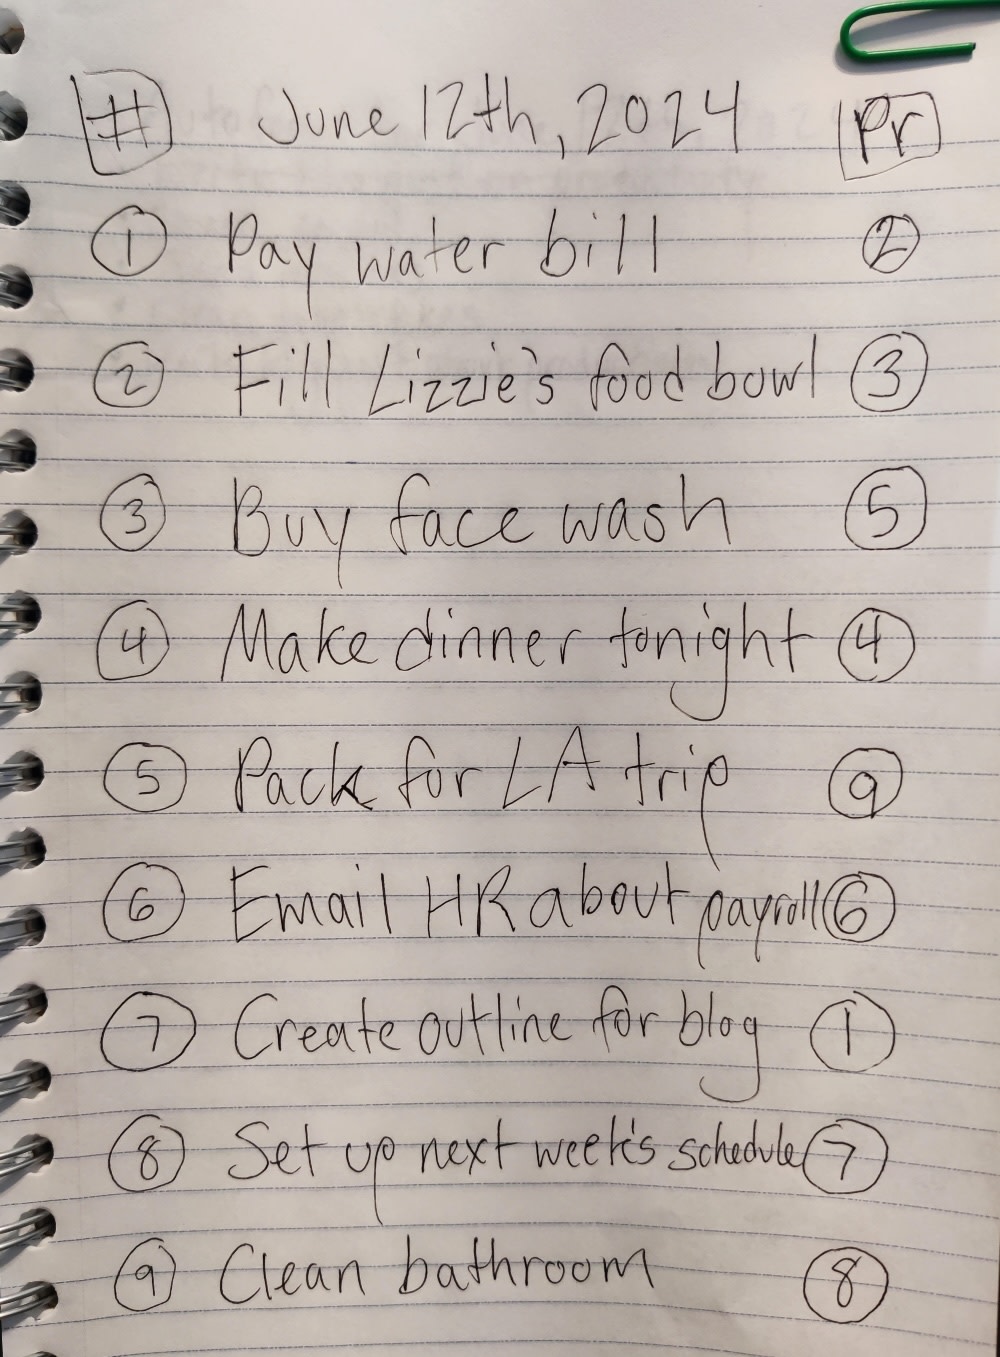 # June 12th, 2024 Pr
1 Pay water bill 2
2 Fill Lizzie's food bowl 3
3 Buy face wash 5
4 Make dinner tonight 4
5 Pack for LA trip 9
6 Email HR about payroll 6
7 Create outline for blog 1
8 Set up next week's schedule 7
9 Clean bathroom 8